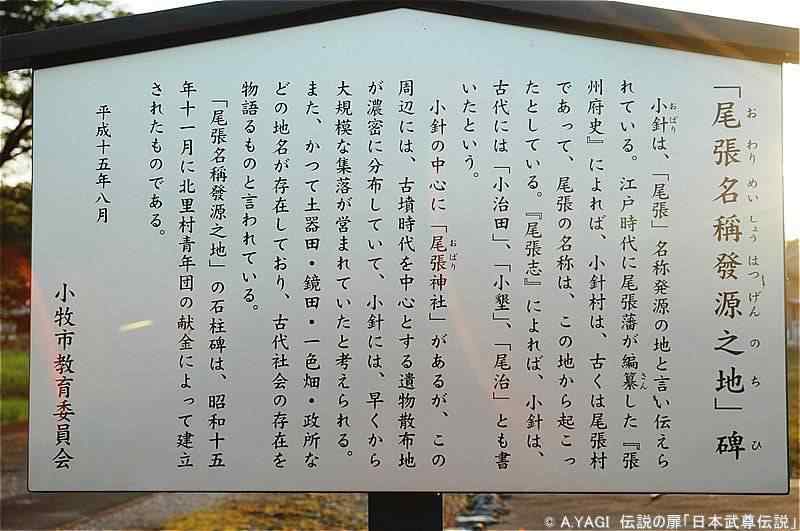 「尾張名稱發源之地」碑
おわりめいしょうはつげんのちひ
小針は、「尾張」名称発源の地と言い伝えら
おばり
れている。江戸時代に尾張藩が編纂した『張
さん
州府史』によれば、小針村は、古くは尾張村
であって、尾張の名称は、この地から起こっ
たとしている。『尾張志』によれば、小針は、
古代には「小治田」、「小墾」、「尾治」とも書
いたという。
小針の中心に「尾張神社」があるが、この
おばり
周辺には、古墳時代を中心とする遺物散布地
が濃密に分布していて、小針には、早くから
大規模な集落が営まれていたと考えられる。
また、かつて土器田・鏡田・一色畑・政所な
どの地名が存在しており、古代社会の存在を
物語るものと言われている。
「尾張名稱發源之地」の石柱碑は、昭和十五
年十一月に北里村青年団の献金によって建立
されたものである。
平成十五年八月
小牧市教育委員会
© A.YAGI 伝説の扉「日本武尊伝説」